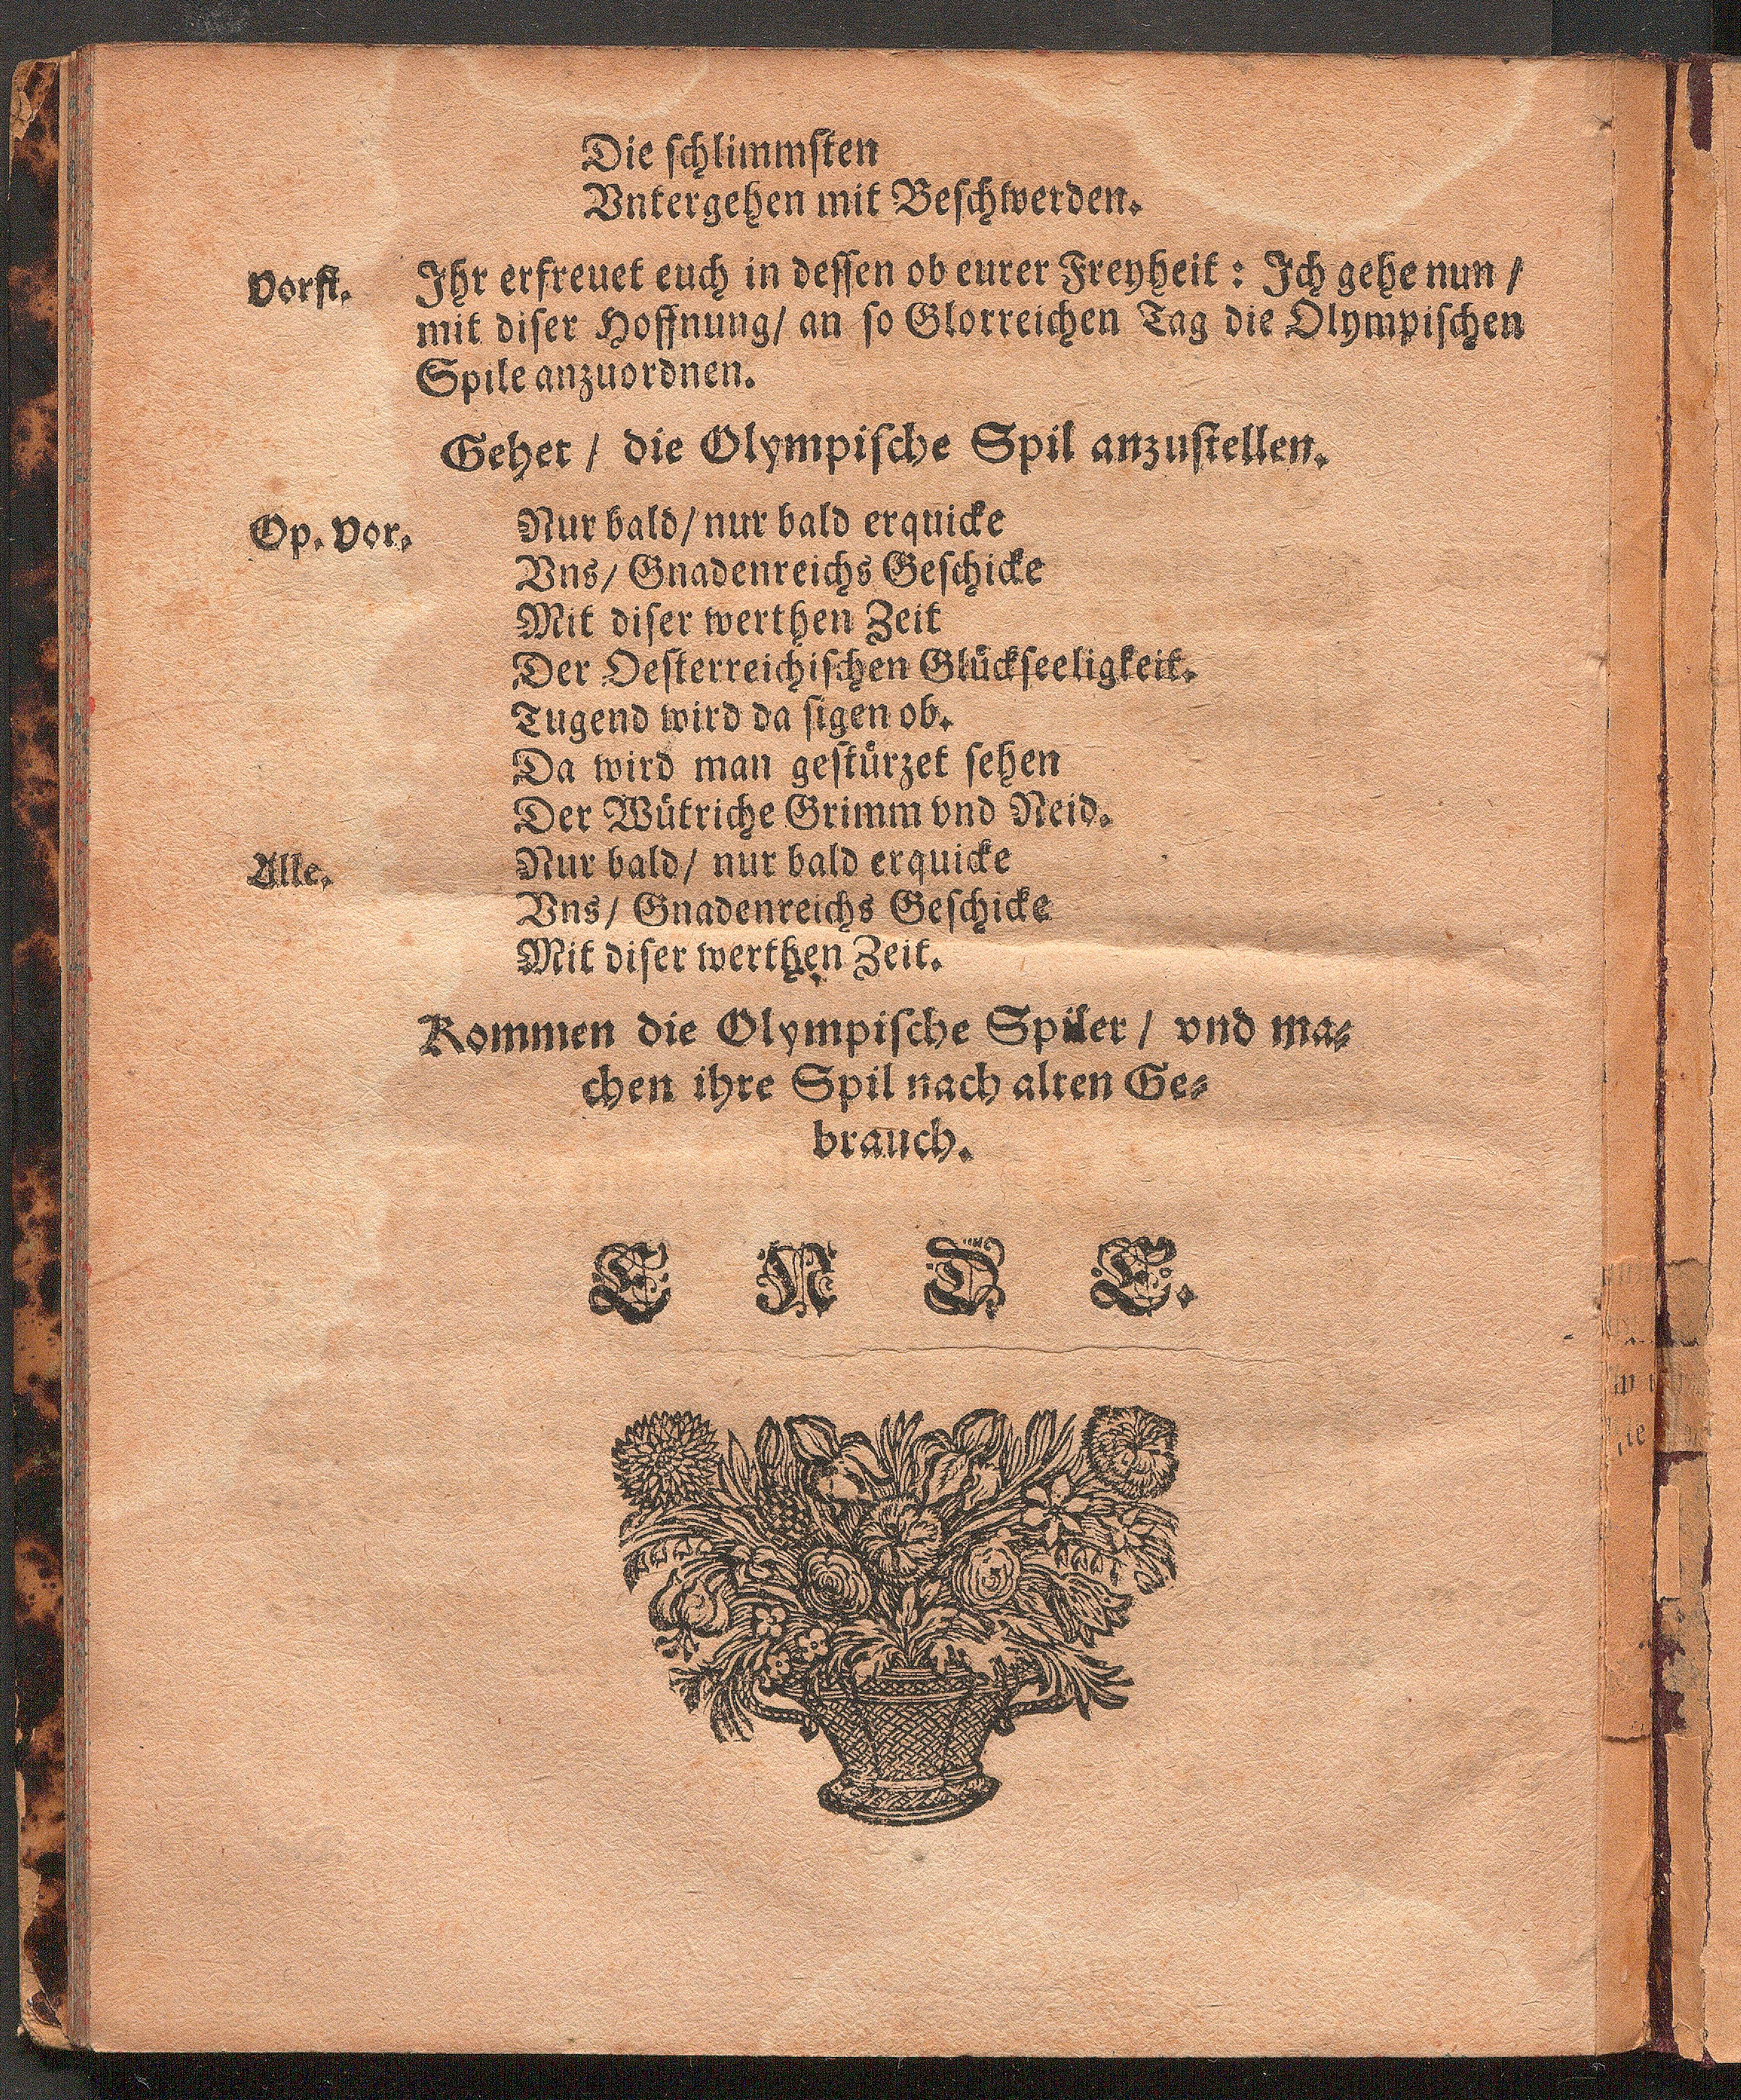 Die ſchlimmſten
Vntergehen mit Beſchwerden.
Vorſt. Ihr erfreuet euch in deſſen ob eurer Freyheit: Ich gehe nun /
mit diſer Hoffnung/ an ſo Glorreichen Tag die Olympiſchen
Spile anzuordnen.
Gehet / die Olympiſche Spil anzuſtellen.
Op. Vor. Nur bald/ nur bald erquicke
Vns/ Gnadenreichs Geſchicke
Mit diſer werthen Zeit
Der Oeſterreichiſchen Glückſeeligkeit.
Tugend wird da ſigen ob.
Da wird man geſtürzet ſehen
Der Wütriche Grimm vnd Neid.
Alle. Nur bald/ nur bald erquicke
Vns/ Gnadenreichs Geſchicke
Mit diſer werthen Zeit.
Kommen die Olympiſche Spiler / vnd ma-
chen ihre Spil nach alten Ge-
brauch.
E N D E.